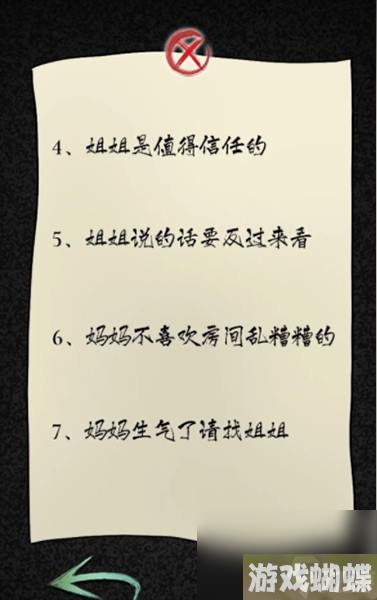 4、姐姐是值得信任的
5、姐姐说的话要反过来看
6、妈妈不喜欢房间乱糟糟的
7、妈妈生气了请找姐姐
游戏蝴蝶